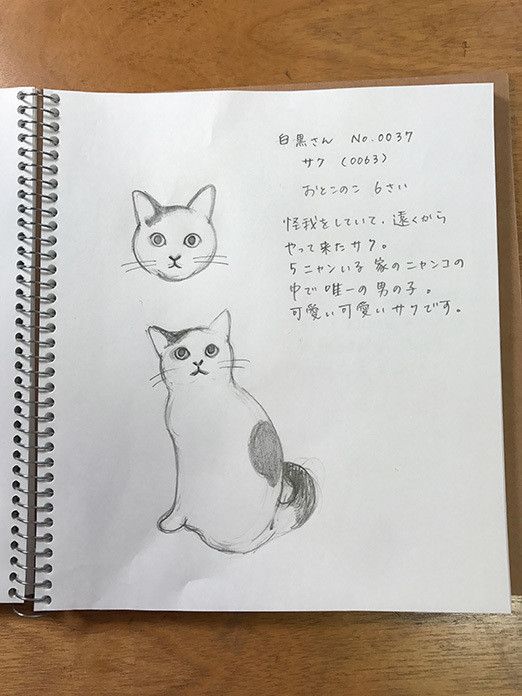 白黒さん No.0037
サク (0063)
おとこのこ 6さい
怪我をしていて、遠くから
やって来たサク。
5ニャンいる 家のニャンコの
中で 唯一の男の子。
可愛い可愛いサクです。